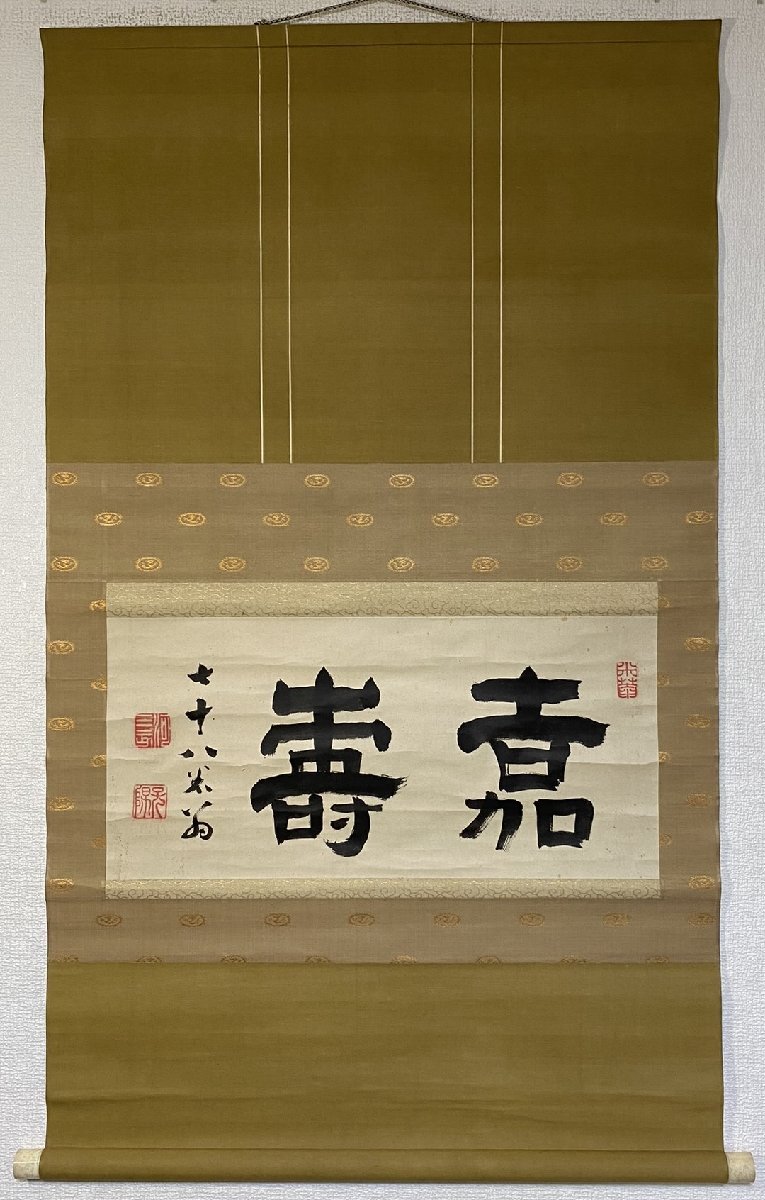 嘉壽
七十八米翁